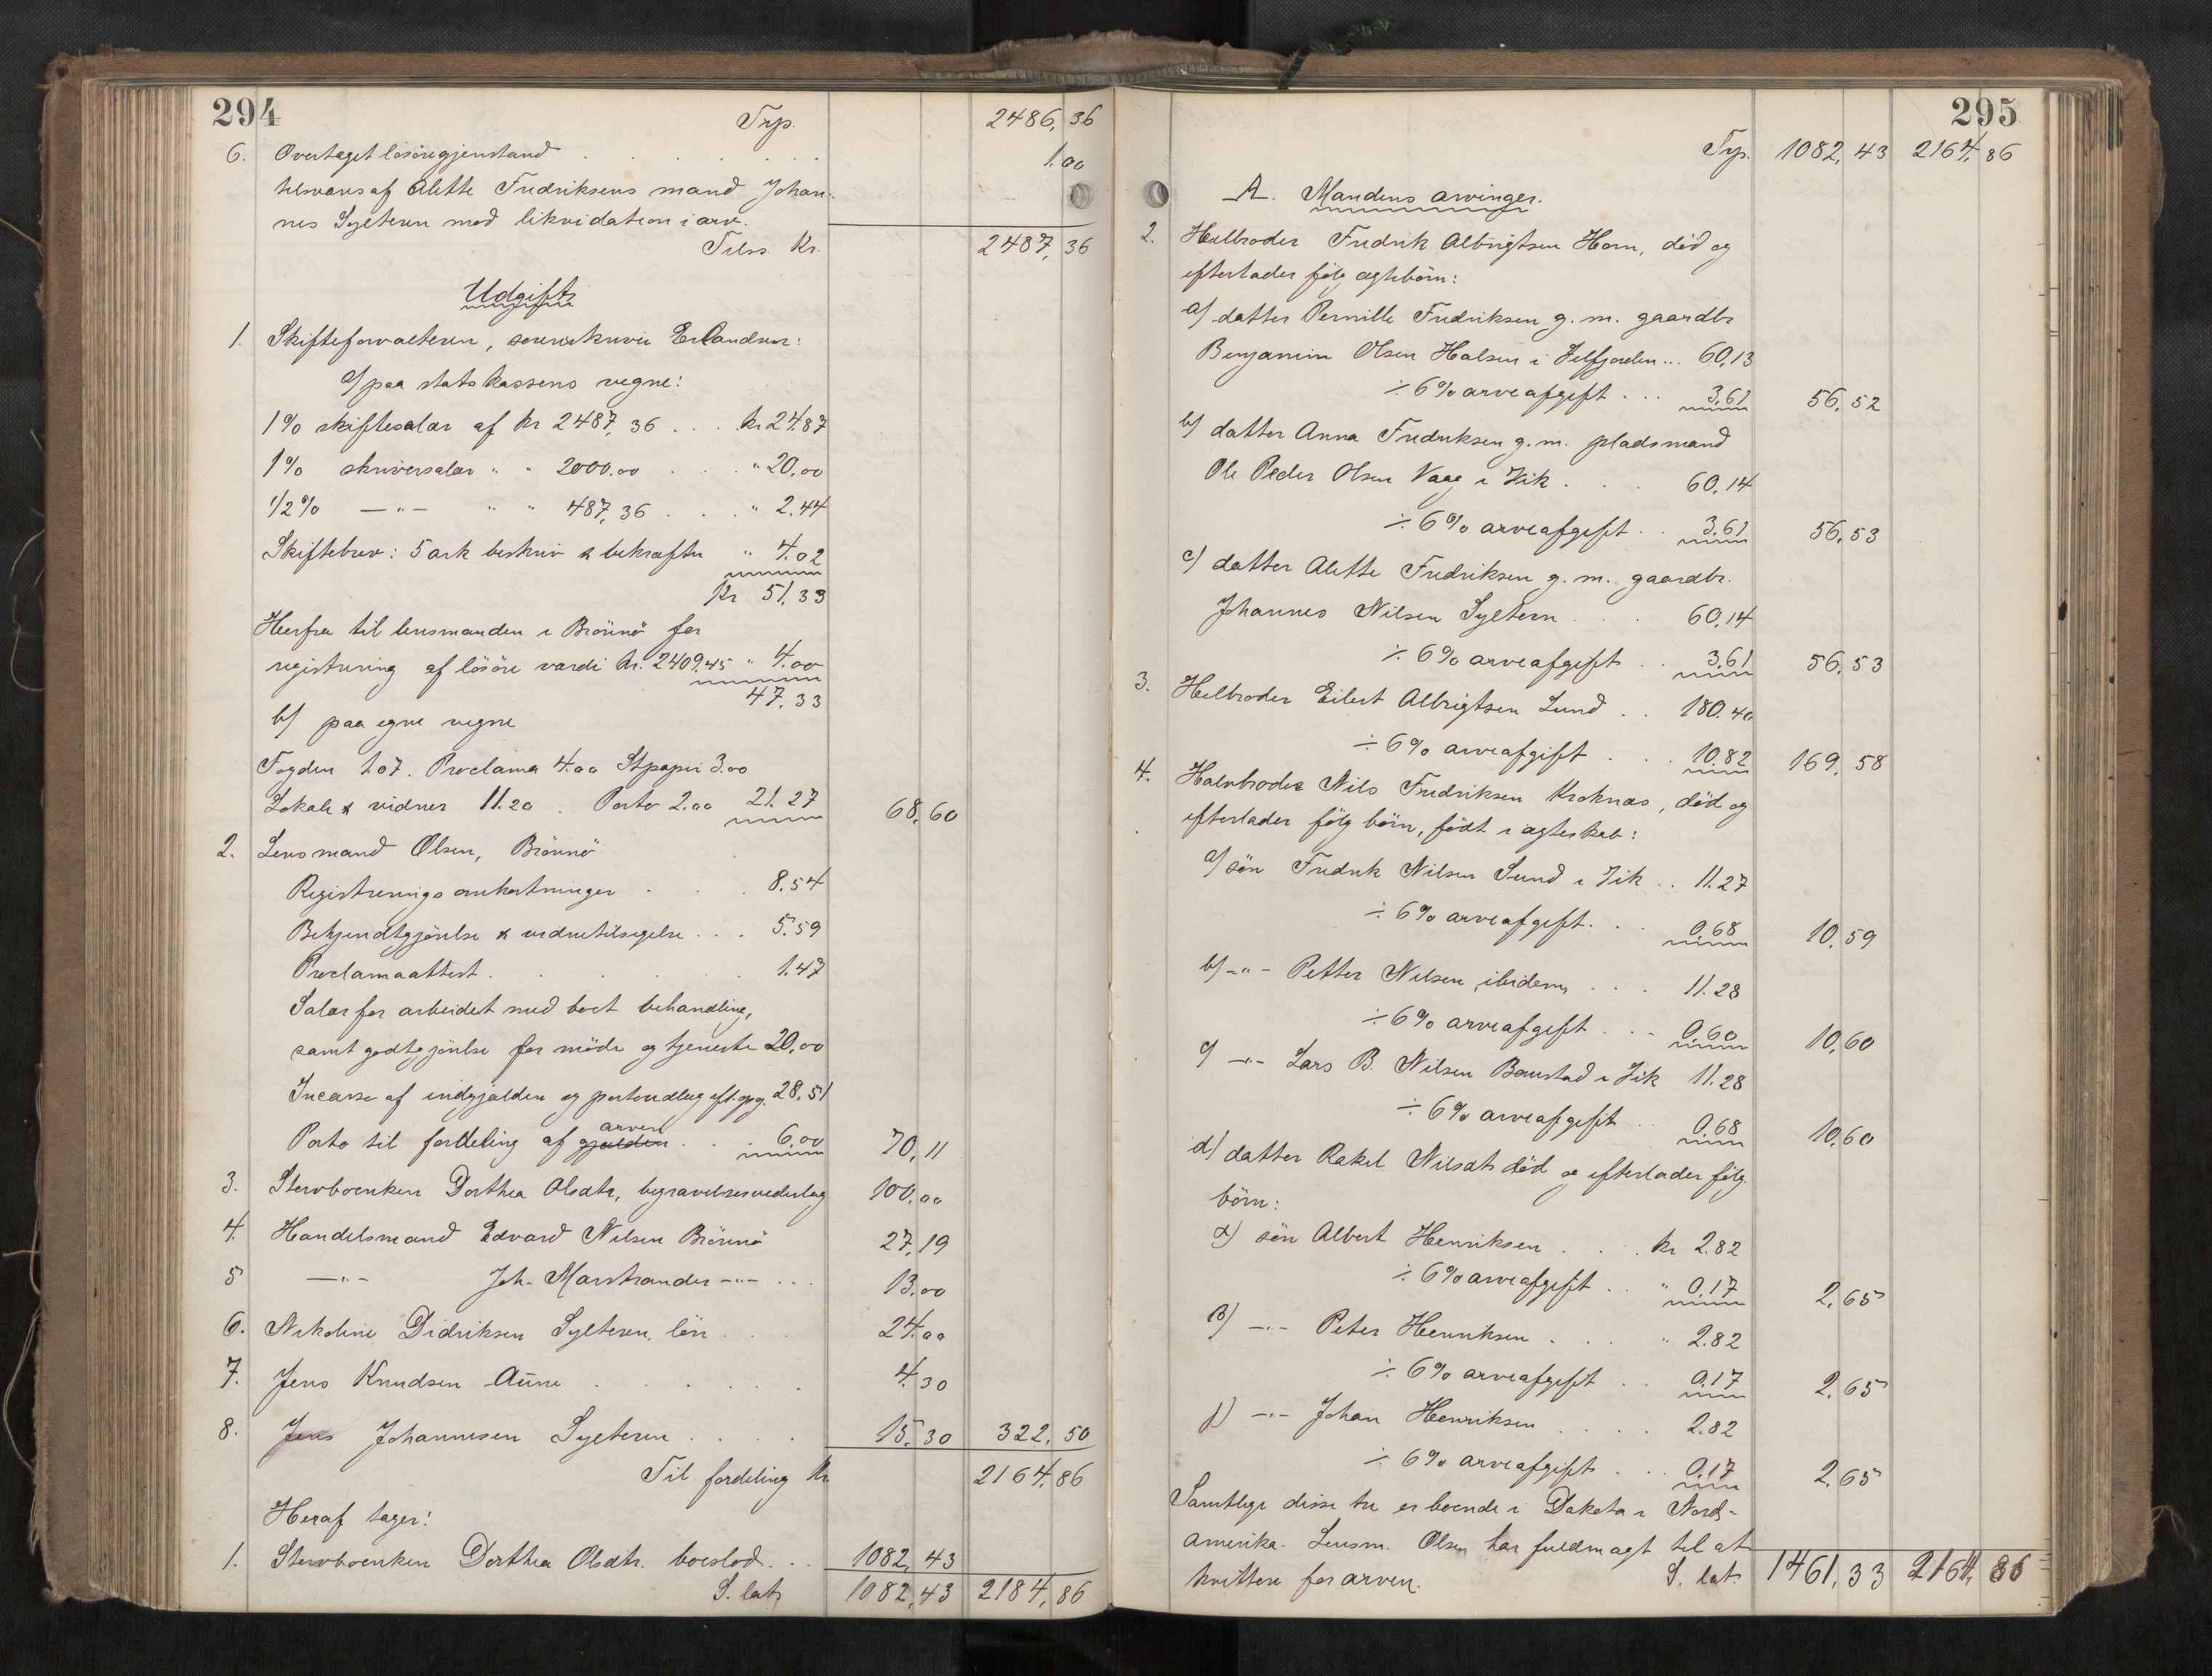 294
Trp. 2486,36
6. Overtaget lösöregjenstand . . . . . . . 1.00
tilsvares af Alette Fredriksens mand Johan-
nes Sylteren mod likvidation i arv.
Tilss. Kr. 2487,36
Udgift
1. Skifteforvalteren, sorenskriver Erlandsen:
a) paa statskassens vegne:
1% skiftesalær af kr 2487,36 . . . kr 24.87
1% skriversalær " " 2000.00 . . . " 20.00
1/2% —"— " " 487,36 . . . " 2.44
Skiftebrev: 5 ark beskriv & bekræfte " 4.02
Kr 51,33
Herfra til lensmanden i Brönnö for
registrering af lösöre værdi kr. 2409.45 " 4.00
47.33
b) paa egne vegne
Fogden 1.07. Proclama 4.00 Stpapir 3.00
Lokale & vidner 11.20 . Porto 2.00 21.27 68,60
2. Lensmand Olsen, Brönnö
Registreringsomkostninger . . . 8.54
Bekjendtgjörelse & vidnetilsigelse . . . 5.59
Proclamaattest . . . . . 1.47
Salær for arbeidet med boet behandling,
samt godtgjörelse for möde og tjeneste 20,00
Incasso af indgjælden og portoudlæg eft. opg. 28,51
Porto til fordeling af gjælden arven . . . 6.00 70,11
3. Stervboenken Dorthea Olsdtr, begravelsesvederlag 100.00
4. Handelsmand Edvard Nilsen Brönnö 27,19
5 —"— Joh. Marstrander —"— . . . 13.00
6. Nikoline Didriksen Sylteren, lön . . . 24.00
7. Jens Knudsen Aune . . . . . . 4.30
8. Jens Johannesen Sylteren . . . . 15.30 322.50
Til fordeling Kr 2164.86
Heraf tager:
1. Stervboenken Dorthea Olsdtr. boeslod . . . 1082,43
S. lat. 1082,43 2184,86
295
Trp. 1082,43 2164,86
A. Mandens arvinger.
2. Helbroder Fredrik Albrigtsen Horn, död og
efterlader fölg ægtebörn:
a) datter Pernille Fredriksen g. m. gaardbr
Benjamin Olsen Halsen i Velfjorden . . . 60,13
÷ 6% arveafgift . . . 3,61 56,52
b) datter Anna Fredriksen g. m. pladsmand
Ole Peder Olsen Vaag i Vik . . . 60,14
÷ 6% arveafgift . . 3,61 56,53
c) datter Alette Fredriksen g. m. gaardbr.
Johannes Nilsen Syltern . . . 60,14
÷ 6% arveafgift . . 3,61 56,53
3. Helbroder Eilert Albrigtsen Lund . . 180.40
÷ 6% arveafgift . . . 10.82 169,58
4. Halvbroder Nils Fredriksen Kroknæs, död og
efterlader fölg börn, födt i ægteskab:
a) sön Fredrik Nilsen Sund i Vik . . 11.27
÷ 6% arveafgift . . . 0.68 10,59
b) —"— Petter Nilsen, ibidem, . . . 11.28
÷ 6% arveafgift . . . 0,60 10,60
c) —"— Lars B. Nilsen Baustad i Vik 11.28
÷ 6% arveafgift . . 0.68 10,60
d) datter Rakel Nilsdtr död og efterlader fölg.
börn:
α) sön Albert Henriksen . . . kr 2.82
÷ 6% arveafgift . . " 0.17 2,65
β) —"— Peter Henriksen . . . " 2.82
÷ 6% arveafgift . . 0,17 2,65
γ) —"— Johan Henriksen . . . . 2.82
÷ 6% arveafgift . . . 0,17 2,65
Samtlige disse tre er boende i Dakota i Nord-
amerika. Lensm. Olsen har fuldmagt til at
kvittere for arven. S. lat. 1461,33 2164,86